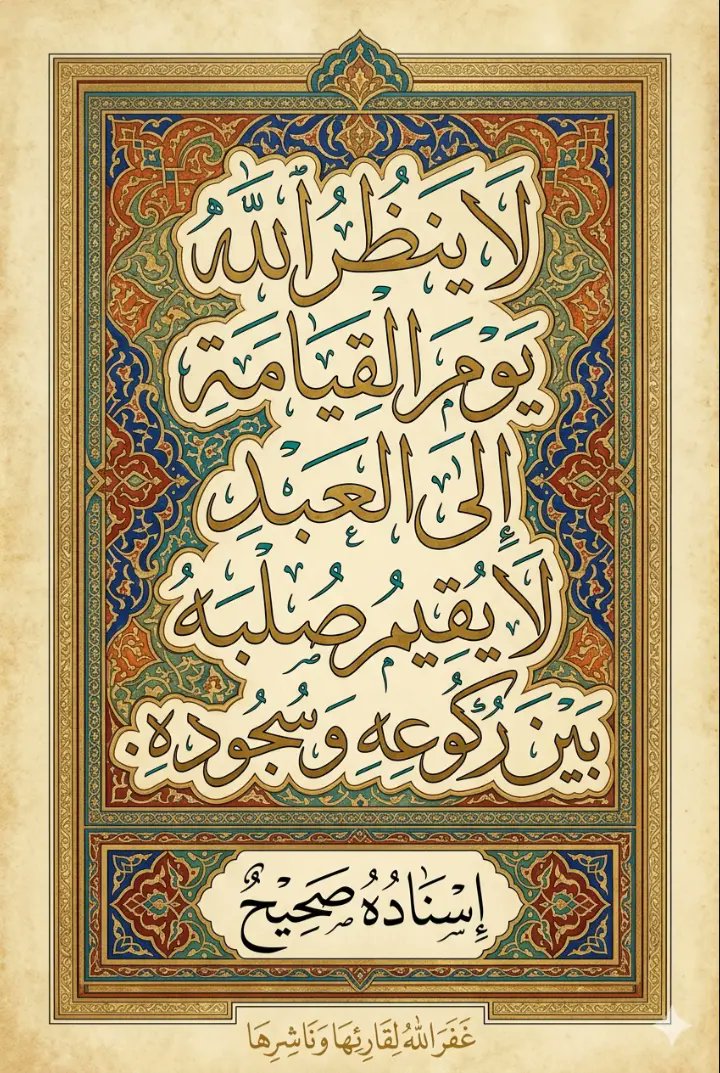 لَا يَنظُرُ ٱللَّهُ
يَوْمَ الْقِيَامَةِ
إِلَى الْعَبْدِ
لَا يُقِيمُ صُلْبَهُ
بَيْنَ رُكُوعِهِ وَسُجُودِهِ.
إِسْنَادُهُ صَحِيْحٌ
غَفَرَ اللّٰهُ لِقَارِئِهَا وَنَاشِرِهَا